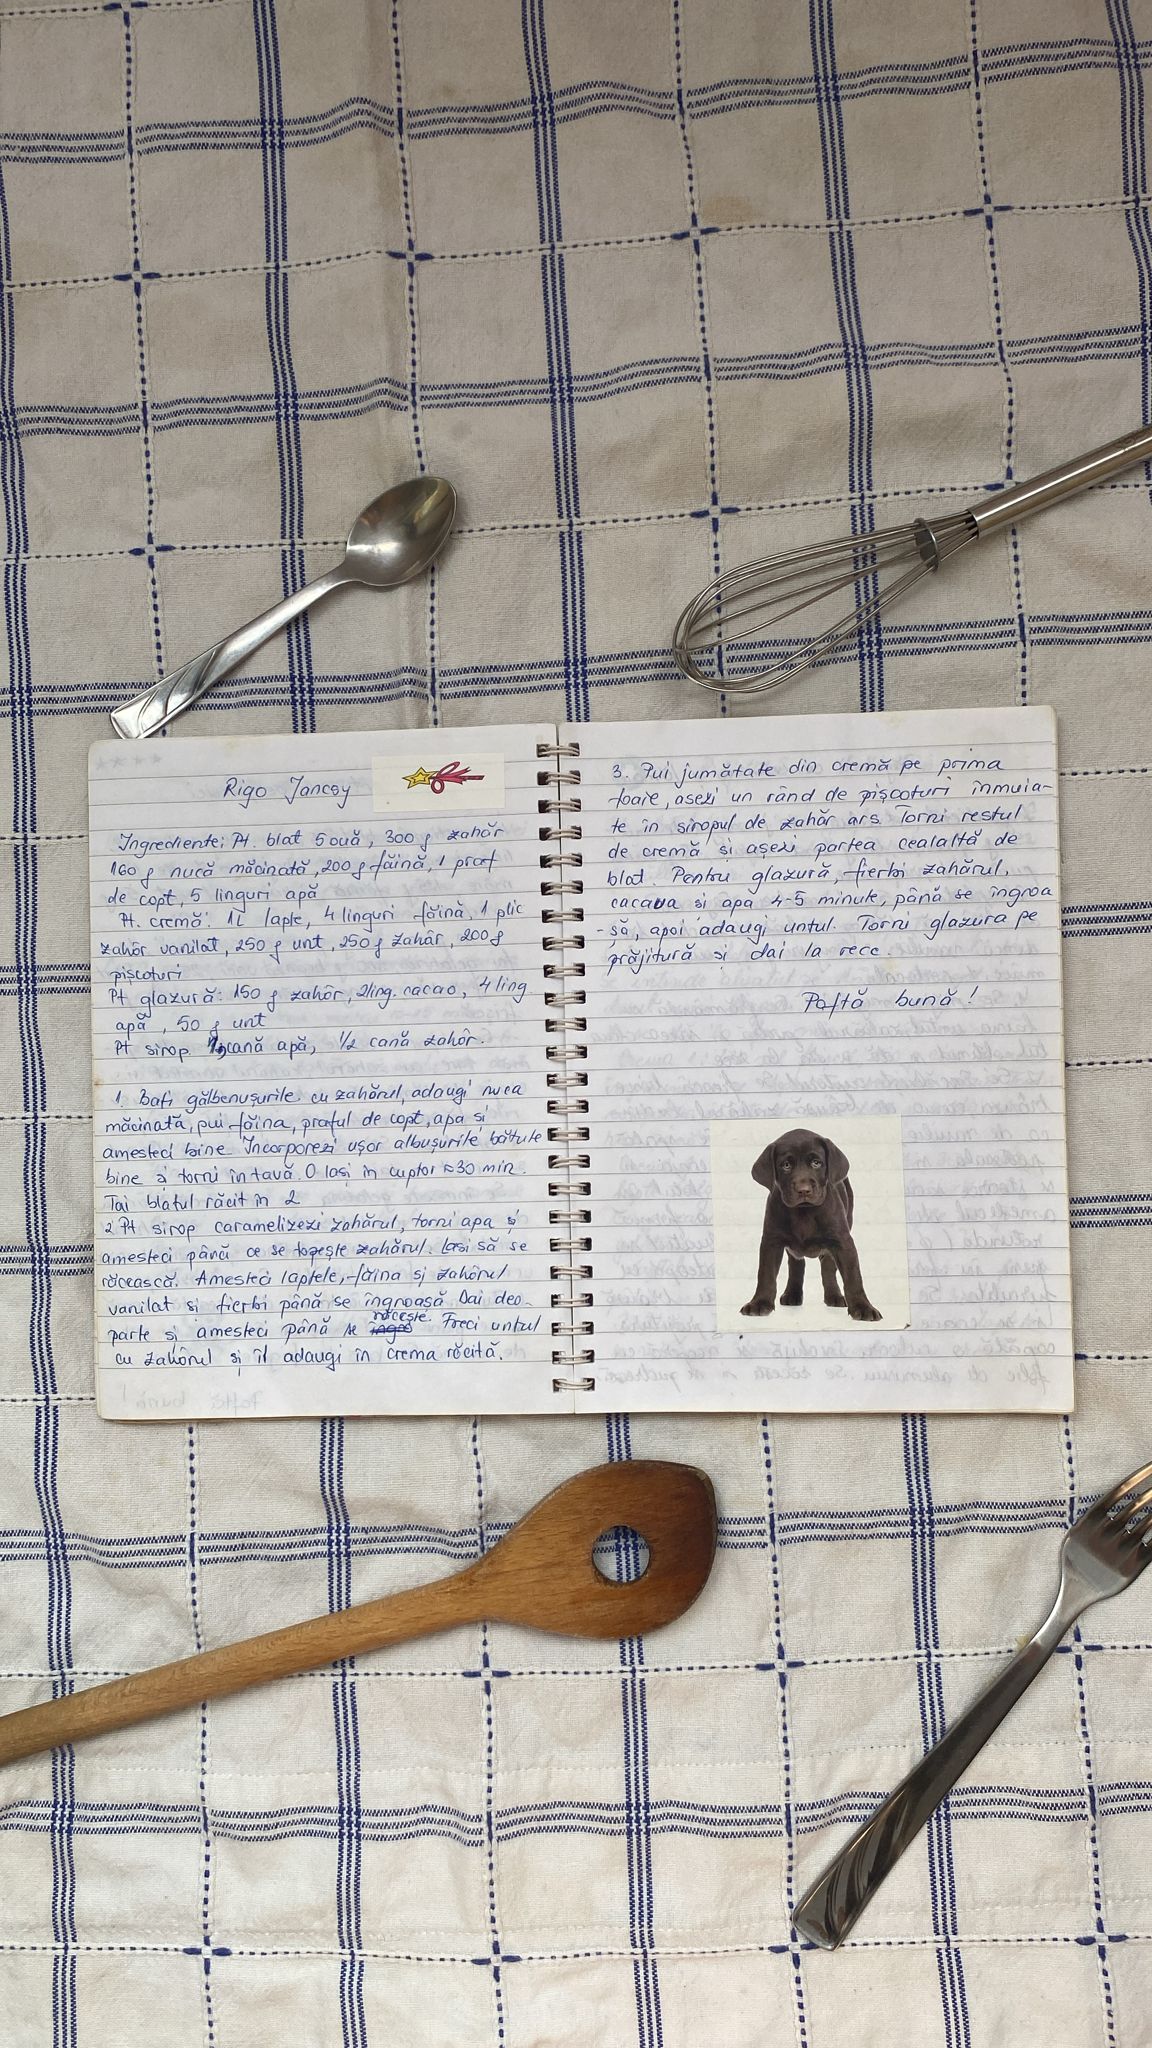 Rigo Jancsy
Ingrediente: Pt. blat 5 ouă, 300 g zahăr
160 g nucă măcinată, 200 g făină, 1 praf
de copt, 5 linguri apă
Pt. cremă: 1L lapte, 4 linguri făină, 1 plic
zahăr vanilat, 250 g unt, 250 g zahăr, 200 g
pișcoturi
Pt glazură: 150 g zahăr, 2 ling. cacao, 4 ling.
apă, 50 g unt
Pt sirop 1/2 cană apă, 1/2 cană zahăr.
1. Bați gălbenușurile cu zahărul, adaugi nuca
măcinată, pui făina, praful de copt, apa și
amesteci bine. Încorporezi ușor albușurile bătute
bine și torni în tavă. O lași în cuptor ≈ 30 min.
Tai blatul răcit în 2
2 Pt sirop caramelizezi zahărul, torni apa și
amesteci până ce se topește zahărul. Lasi să se
răcească. Amesteci laptele, făina și zahărul
vanilat si fierbi până se îngroașă. Dai deo-
parte și amesteci până se răcește. Freci untul
cu zahărul și îl adaugi în crema răcită.
3. Pui jumătate din cremă pe prima
foaie, asezi un rând de pișcoturi înmuia-
te în siropul de zahăr ars. Torni restul
de cremă și așezi partea cealaltă de
blat. Pentru glazură, fierbi zahărul,
cacaua si apa 4-5 minute, până se îngroa
-să, apoi adaugi untul. Torni glazura pe
prăjitură și dai la rece.
Poftă bună!